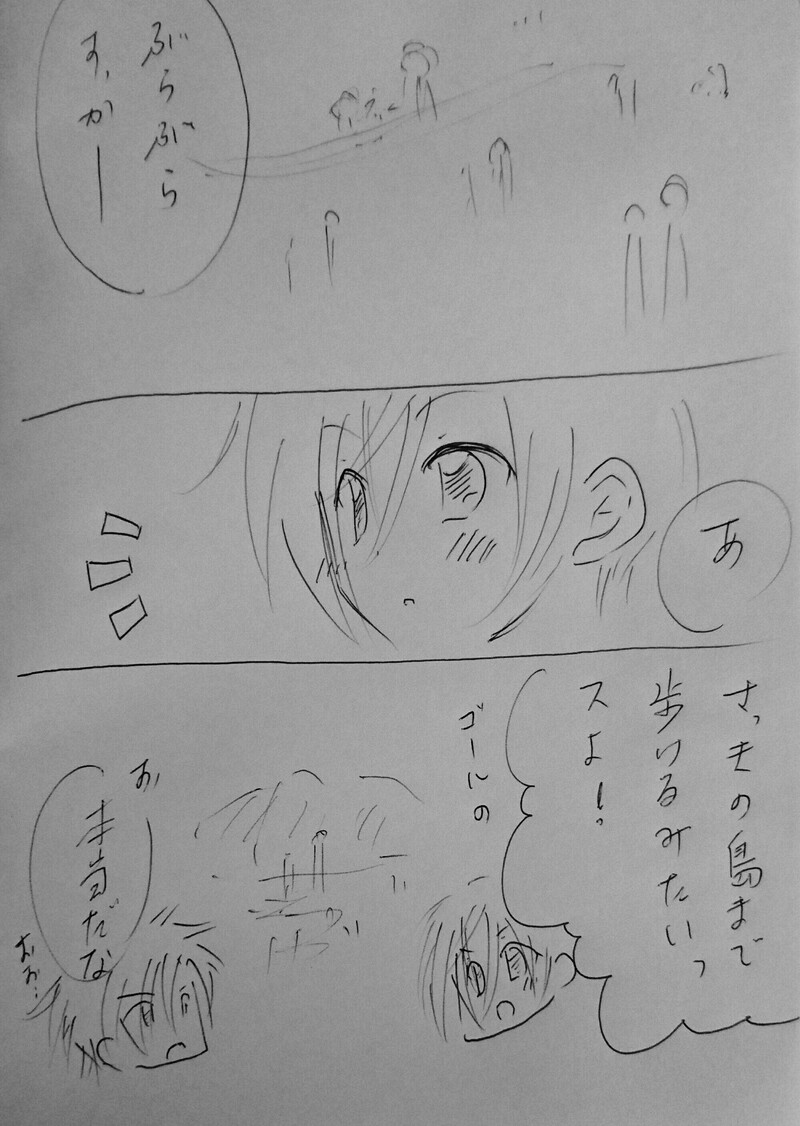 ぶらぶら
すっかー
あ
さっきの島まで
歩けるみたいっ
スよ！
ゴールの
お
本当だな
おお…